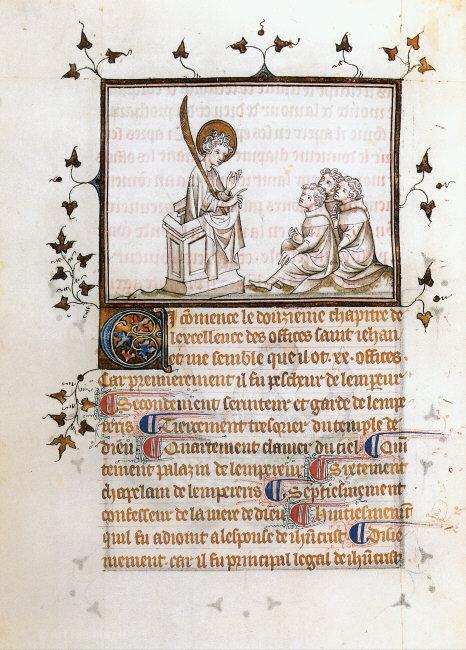 Ci cōmence le douzieme chapitre de
lexcellence des offices saint iehan
et me semble que il ot .xx. offices.
Car premierement il fu peschur de lempeur
Secondement seruiteur et garde de lempe
Tiercement tresorier du temple de
dieu Quartement clauier du ciel Quin
tement palazin de lempereur Sixtement
chapelain de lemperers Septiesmement
confesseur de la mere de dieu Lhuitiesment
quil fu adioint a lespouse de ihūcrist Disie
mement. car il fu principal legal de ihūcrist